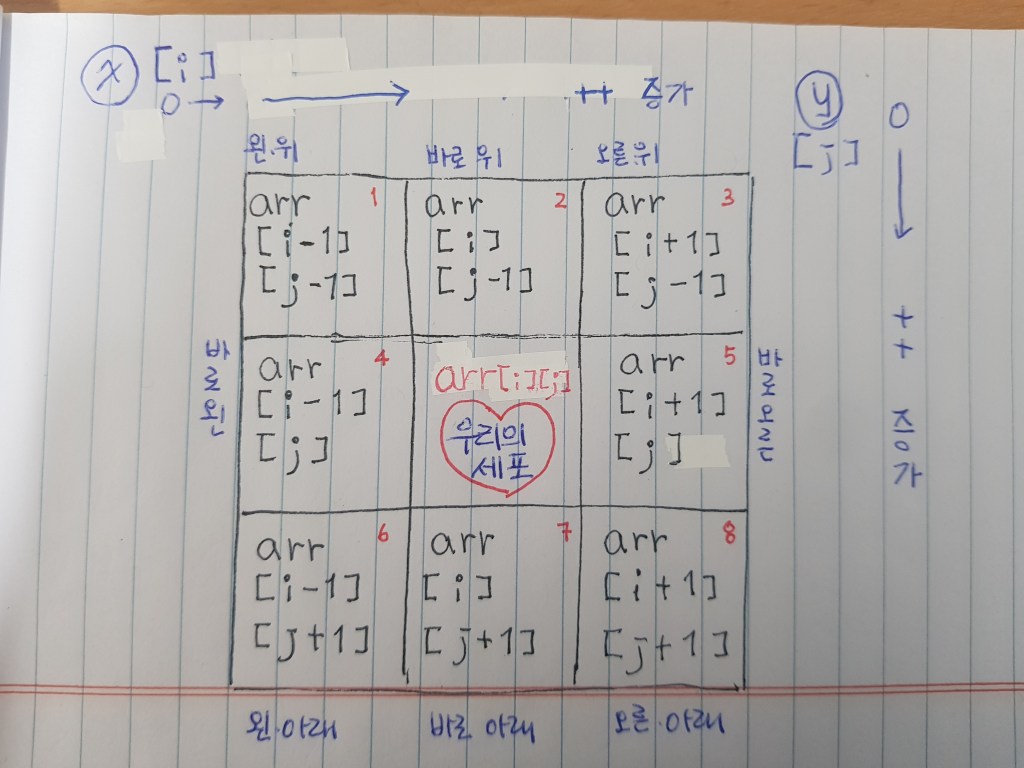 x [i]
0 → ++ 증가
y 0
[j]
++ 증가
왼.위 바로 위 오른.위
arr 1
[i-1]
[j-1]
arr 2
[i]
[j-1]
arr 3
[i+1]
[j-1]
바로 왼
arr 4
[i-1]
[j]
arr[i][j]
우리의
세포
arr 5
[i+1]
[j]
바로 오른
arr 6
[i-1]
[j+1]
arr 7
[i]
[j+1]
arr 8
[i+1]
[j+1]
왼.아래 바로 아래 오른.아래